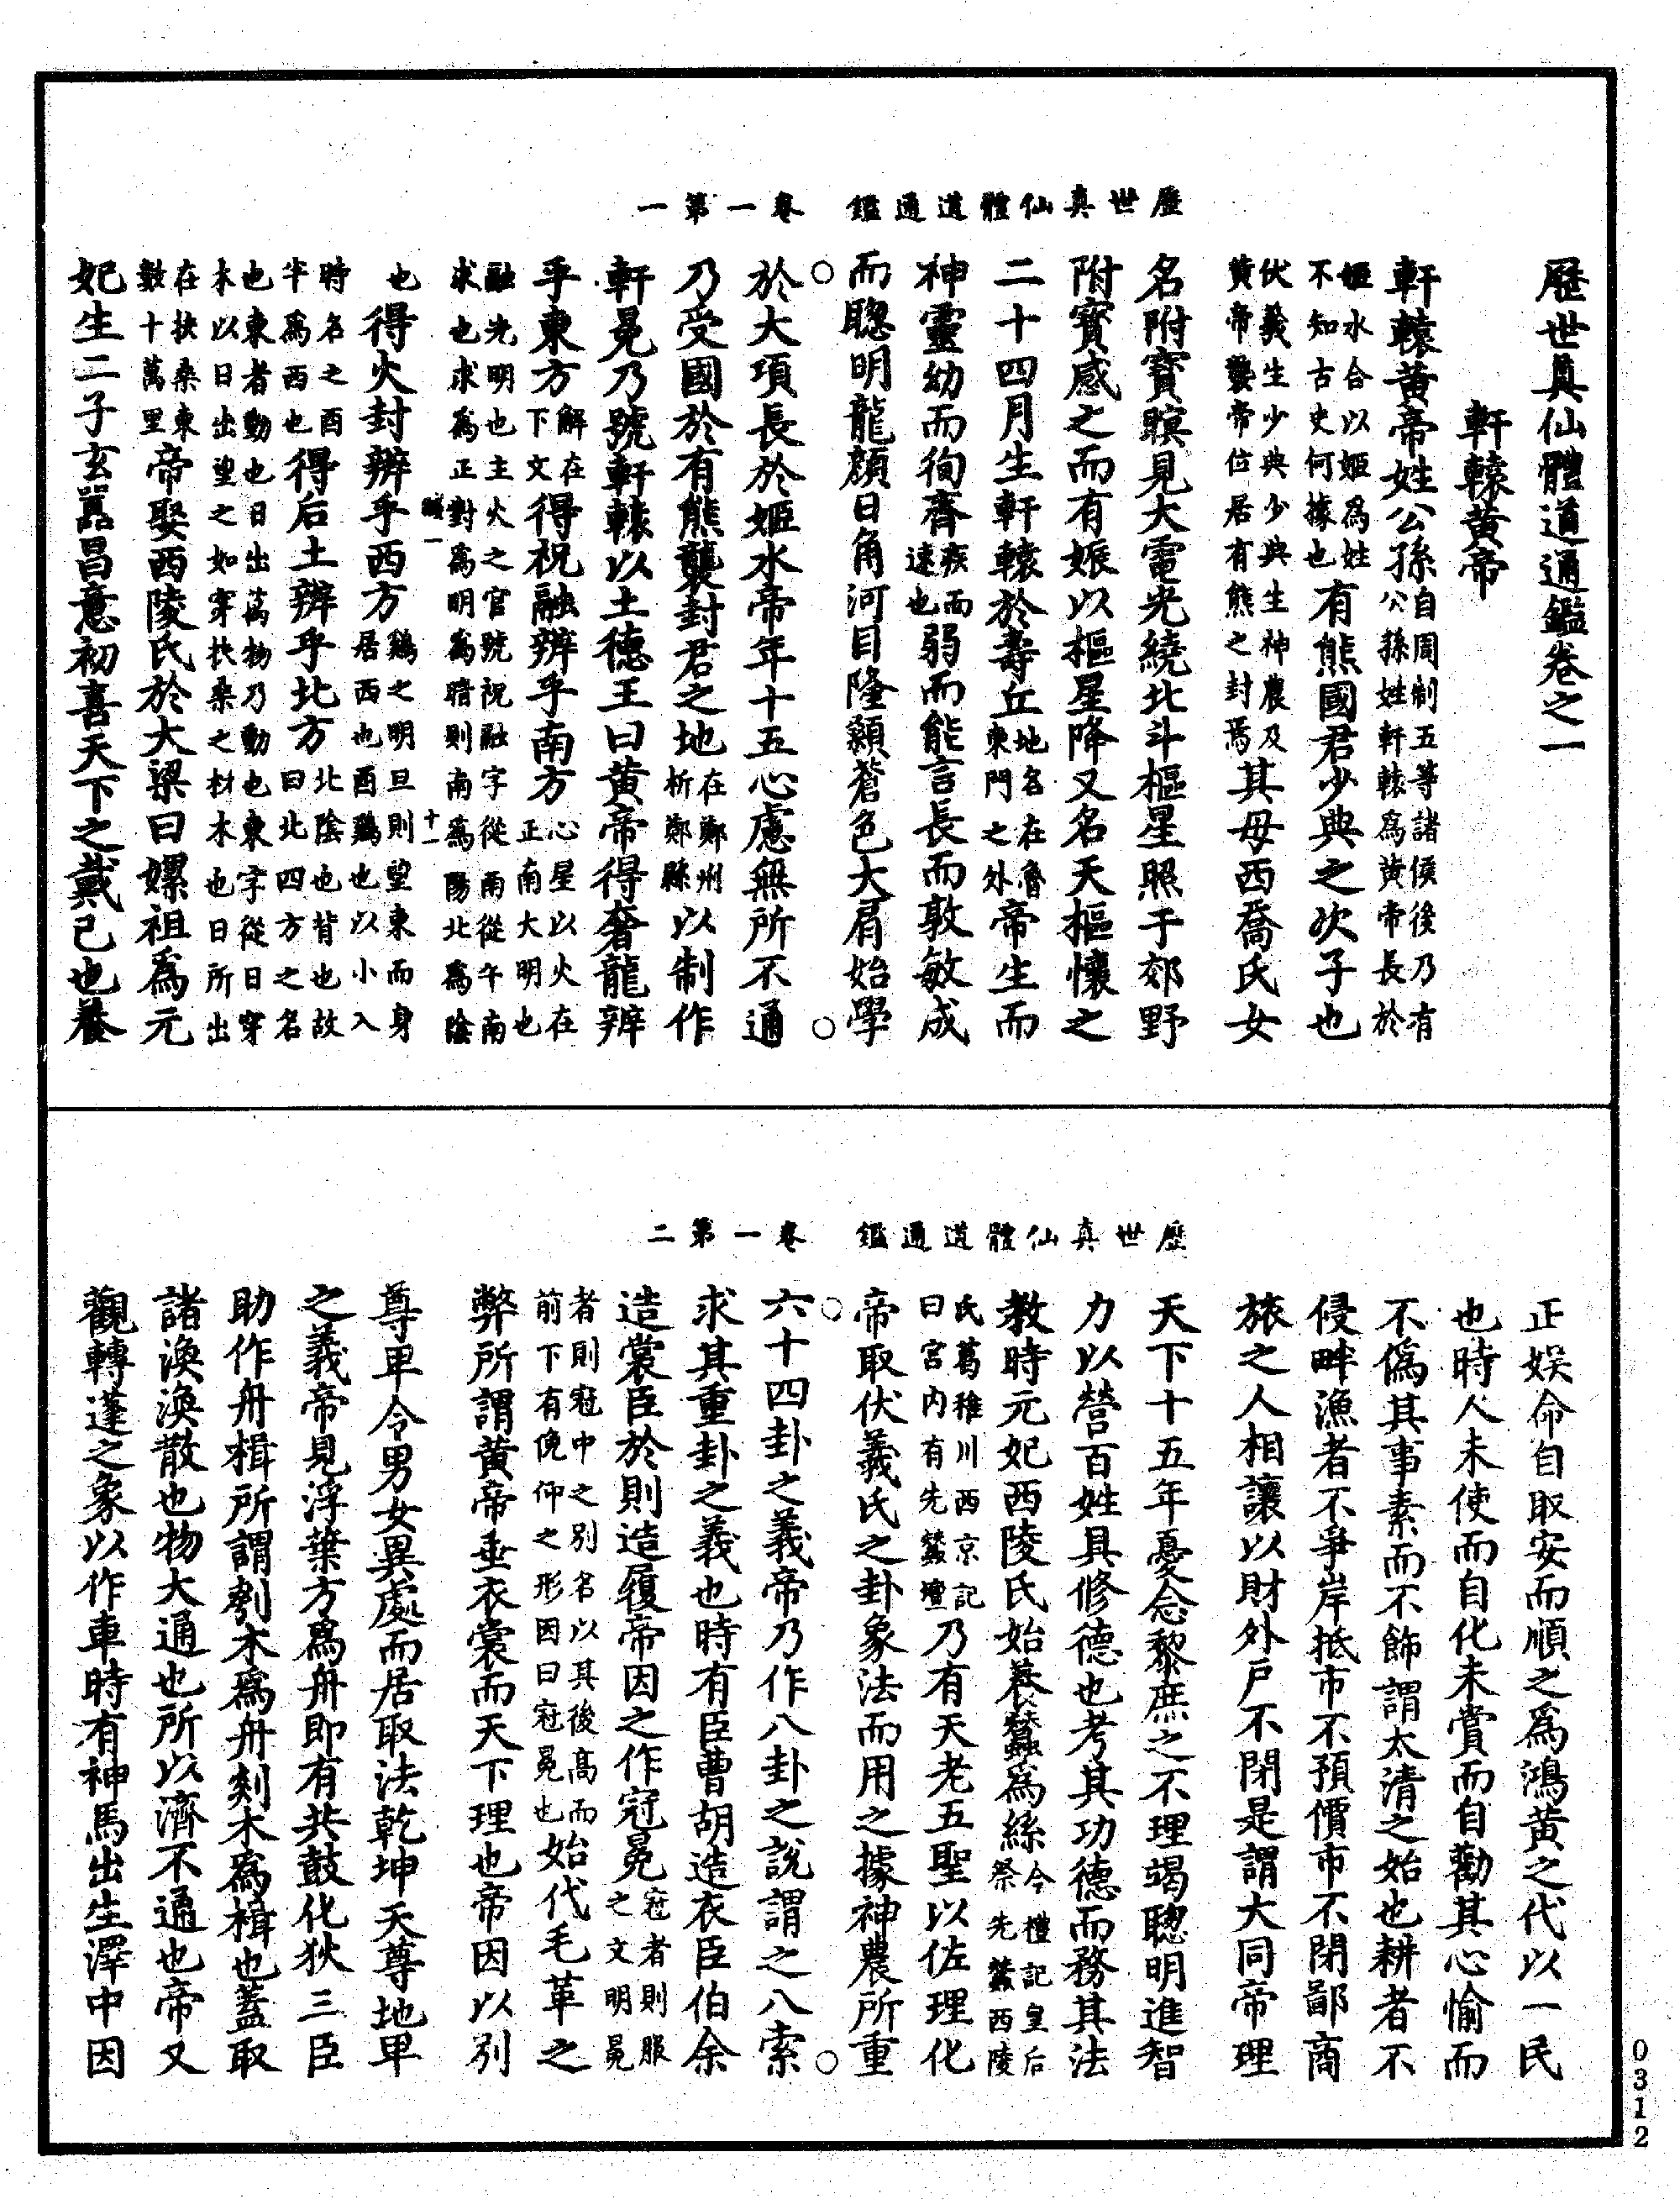 歷世真仙體道通鑑　卷一第一
歷世真仙體道通鑑卷之一
軒轅黃帝
軒轅黃帝姓公孫自周制五等諸侯後乃有公孫姓軒轅為黃帝長於
姬水合以姬為姓不知古史何據也有熊國君少典之次子也
伏羲生少典少典生神農及黃帝襲帝位居有熊之封焉其母西喬氏女
名附寶瞑見大電光繞北斗樞星照于郊野
附寶感之而有娠以樞星降又名天樞懷之
二十四月生軒轅於壽丘地名在魯東門之外帝生而
神靈幼而徇齊疾而速也弱而能言長而敦敏成
而聰明龍顏日角河目隆顙蒼色大肩始學
○於大項長於姬水帝年十五心慮無所不通○
乃受國於有熊襲封君之地在鄭州析鄭縣以制作
軒冕乃號軒轅以土德王曰黃帝得奢龍辨
乎東方解在下文得祝融辨乎南方心星以火在正南大明也
融光明也主火之官號祝融字從鬲從午南求也求為正對為明為暗則南為陽北為陰
一　十一
也得火封辨乎西方鷄之明旦則望東而身居西也酉鷄也以小入
時名之酉半為西也得后土辨乎北方北陰也背也故曰北四方之名
也東者動也日出萬物乃動也東字從日穿木以日出望之如穿扶桑之材木也日所出
在扶桑東數十萬里帝娶西陵氏於大梁曰嫘祖為元
妃生二子玄囂昌意初喜天下之戴己也養
歷世真仙體道通鑑　卷一第二
正娛命自取安而順之為鴻黃之代以一民
也時人未使而自化未賞而自勸其心愉而
不偽其事素而不飾謂太清之始也耕者不
侵畔漁者不爭岸抵市不預價市不閉鄙商
旅之人相讓以財外戶不閉是謂大同帝理
天下十五年憂念黎庶之不理竭聰明進智
力以營百姓具修德也考其功德而務其法
教時元妃西陵氏始養蠶為絲今禮記皇后祭先蠶西陵
氏葛稚川西京記曰宮內有先蠶壇乃有天老五聖以佐理化
帝取伏羲氏之卦象法而用之據神農所重
○六十四卦之義帝乃作八卦之說謂之八索○
求其重卦之義也時有臣曹胡造衣臣伯余
造裳臣於則造履帝因之作冠冕冠者則服之文明冕
者則冠中之別名以其後高而前下有俛仰之形因曰冠冕也始代毛革之
弊所謂黃帝垂衣裳而天下理也帝因以別
尊卑令男女異處而居取法乾坤天尊地卑
之義帝見浮葉方為舟即有共鼓化狄三臣
助作舟楫所謂刳木為舟剡木為楫也蓋取
諸渙渙散也物大通也所以濟不通也帝又
觀轉蓬之象以作車時有神馬出生澤中因
0312